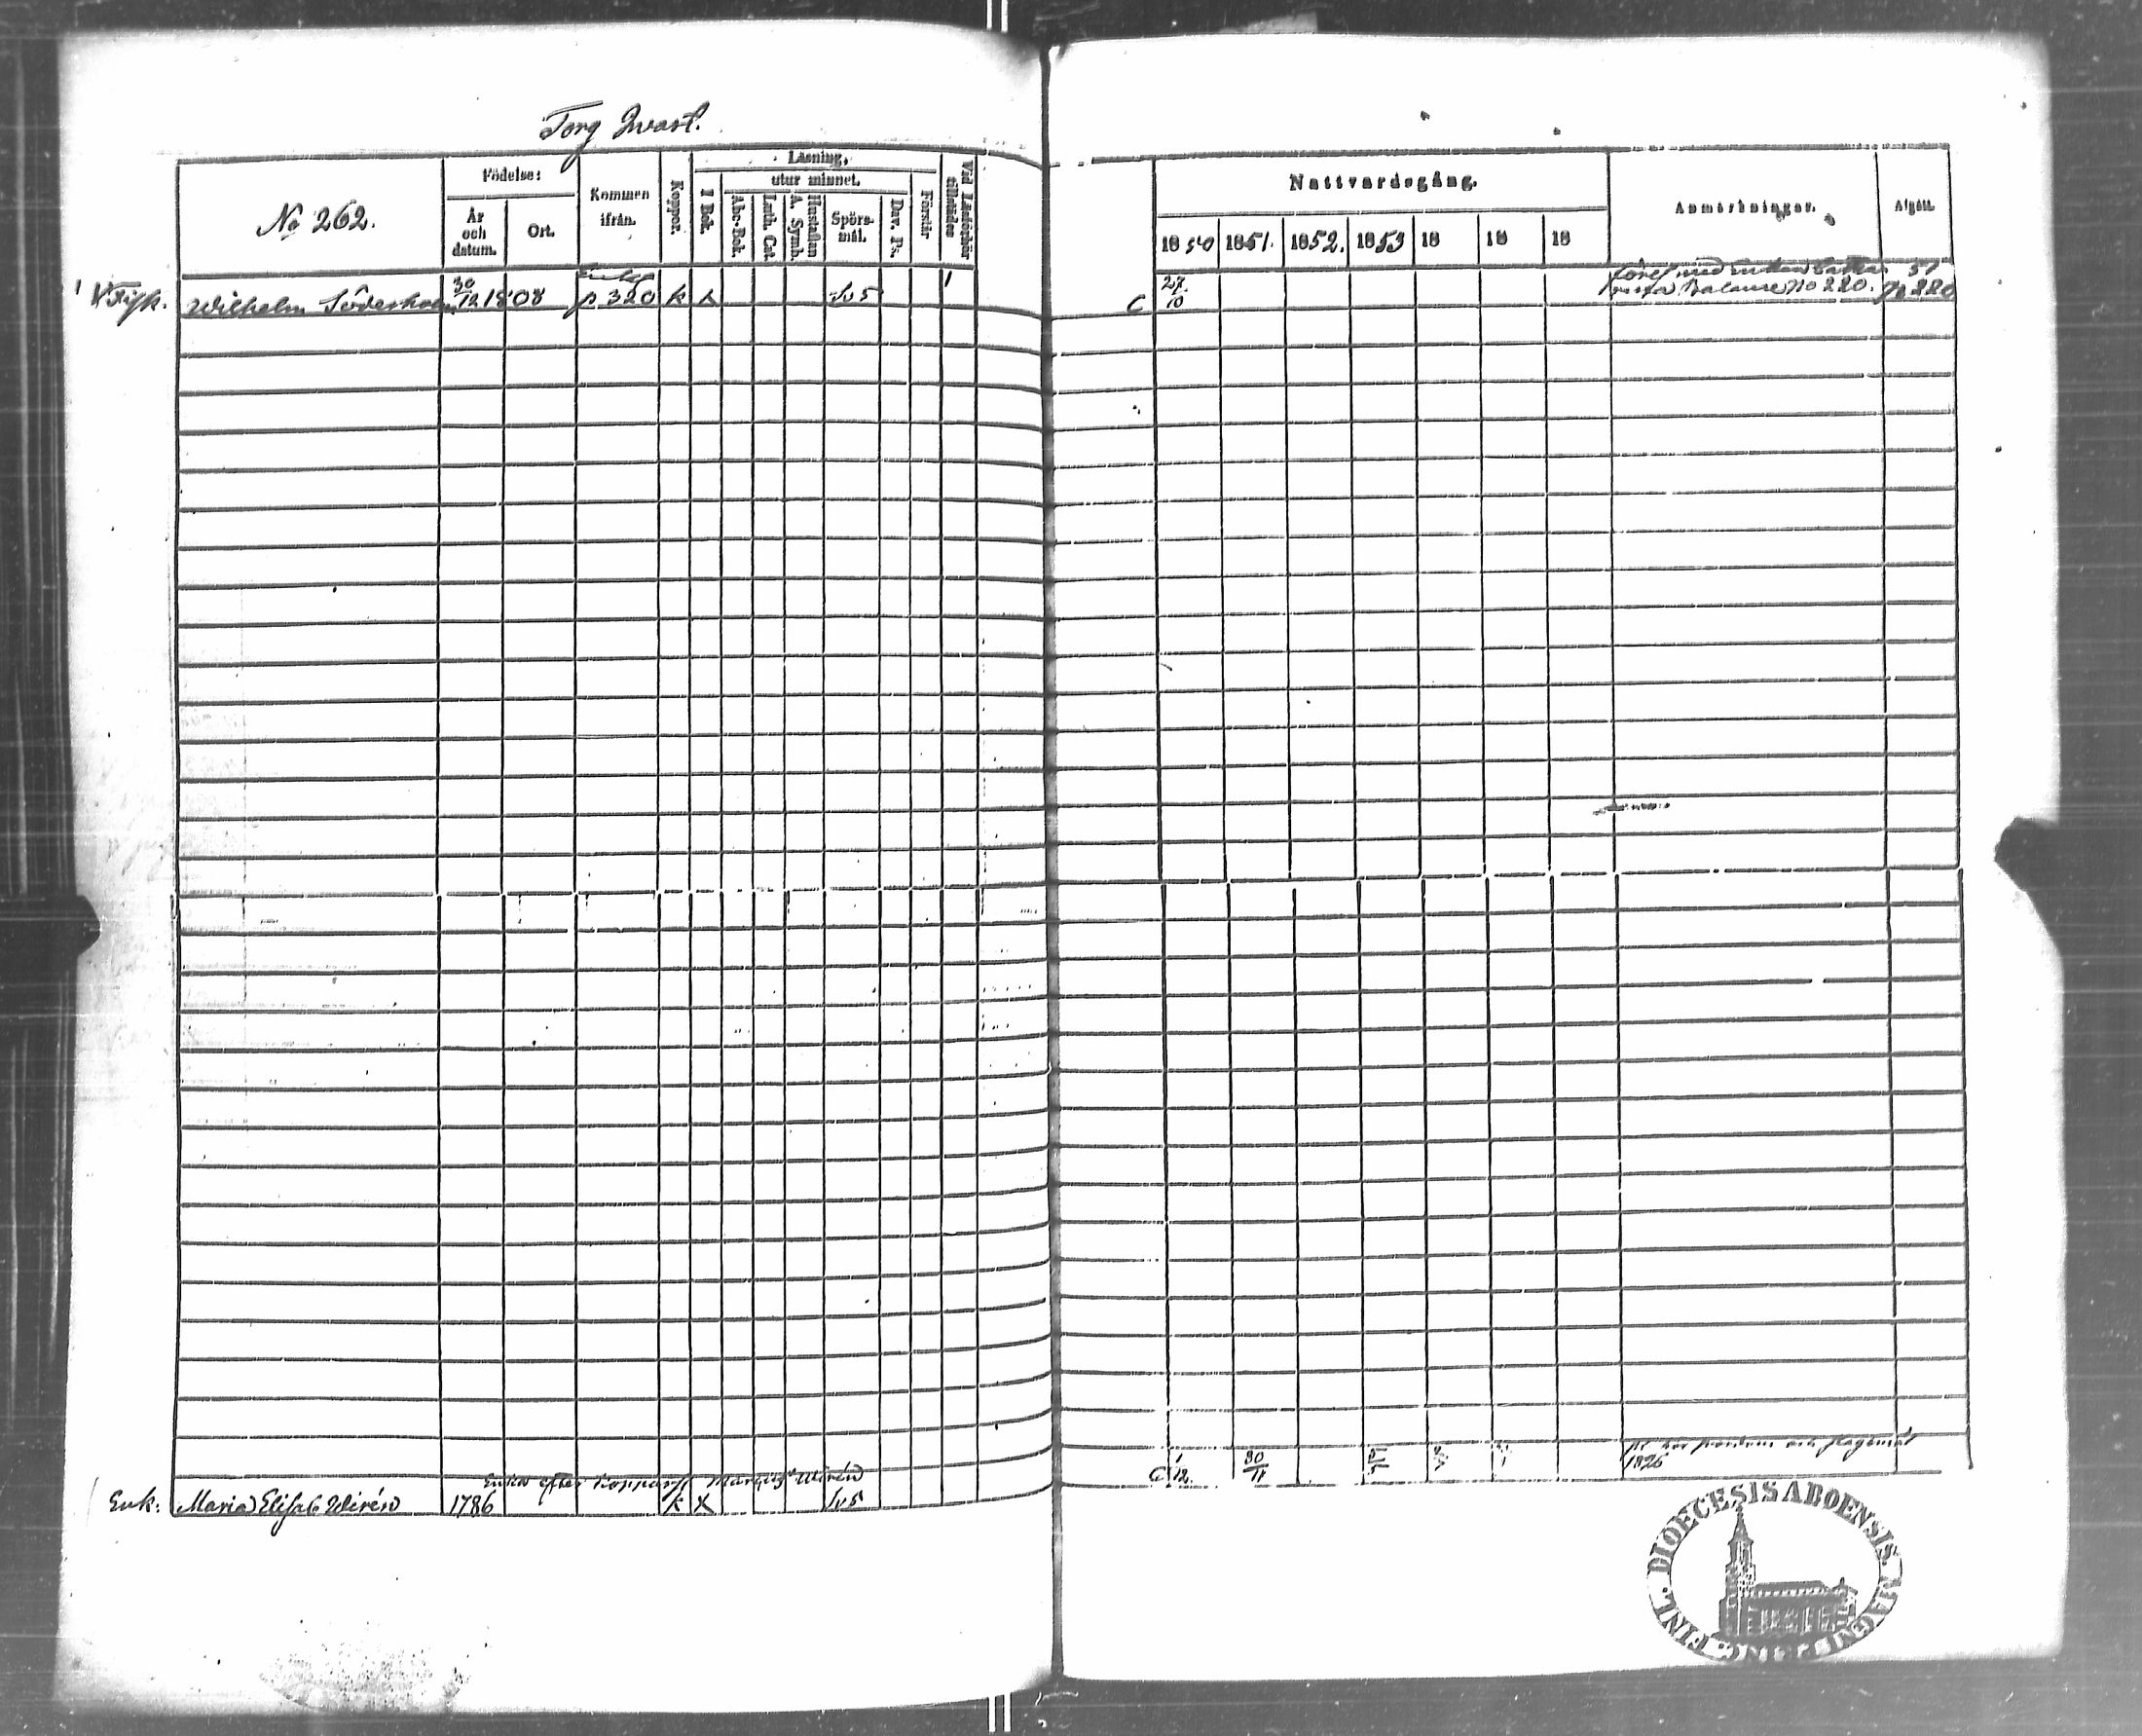 Torg Qvart.
No 262.
Födelse:
År och datum.
Ort.
Kommen ifrån.
Koppor.
Läsning,
I Bok.
utur minnet.
Abc-Bok.
Luth. Cat.
A. Symb.
Hustaflan
Spörs-mål.
Dav. Ps.
Förstår
Vid Läsförhör tillstädes
Nattvardsgång.
1850 1851. 1852. 1853 18 18 18
Anmärkningar.
Afgått.
Wilhelm Söderholm 30/12 1808 p 320 k x Sv 5 1
C 27/10
No 220. 51 No 220
Enka efter Wirén
Enk: Maria Elisab Wirén 1786 k X Sv 5
C 1/12. 30/11
1826
DIOECESIS ABOENSIS. MAGNI PRINC. FINL.